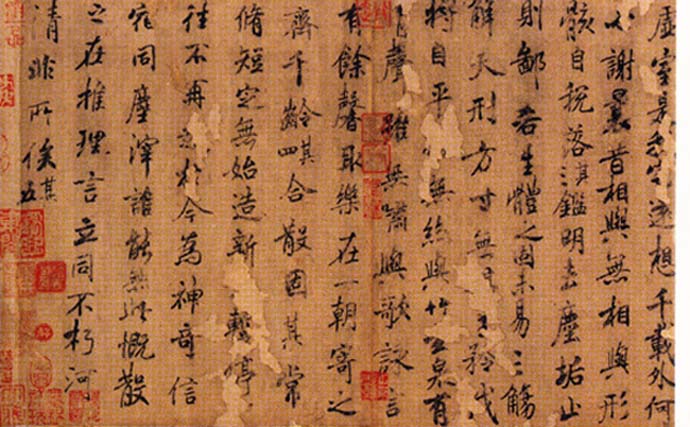 虛室是我宅遠想千載外何
必謝曩昔相與無相與形
骸自脫落其三鑑明去塵垢止
則鄙吝生體之固未易三觴
解天刑方寸無矜伐
將自平無絲與竹玄泉有
聲雖無嘯與歌詠言
有餘馨取樂在一朝寄之
齊千齡其四合散固其常
脩短定無始造新暫停
往不再起於今為神奇信
宿同塵滓誰能無此慨散
之在推理言立同不朽河
清非所俟其五